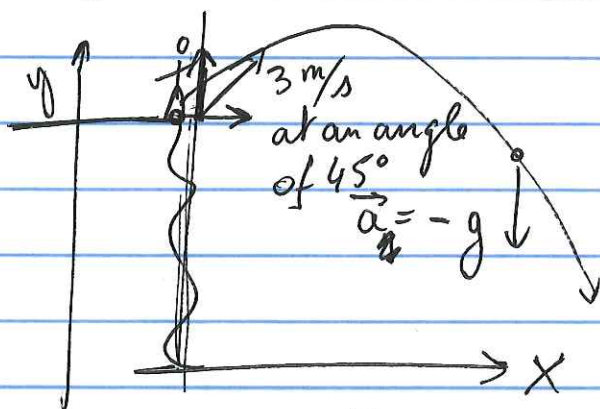 y
3 m/s
at an angle
of 45°
a = - g
X